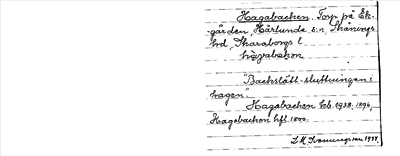 Hagabacken. Torp på Ek-
gården, Härlunda s:n, Skånings
hrd, Skaraborgs l.
hagabakan
"Backstått-sluttningen i
hagen".
Hagabacken hb. 1938, 1896,
Hagebacken hfl. 1800.
1938.